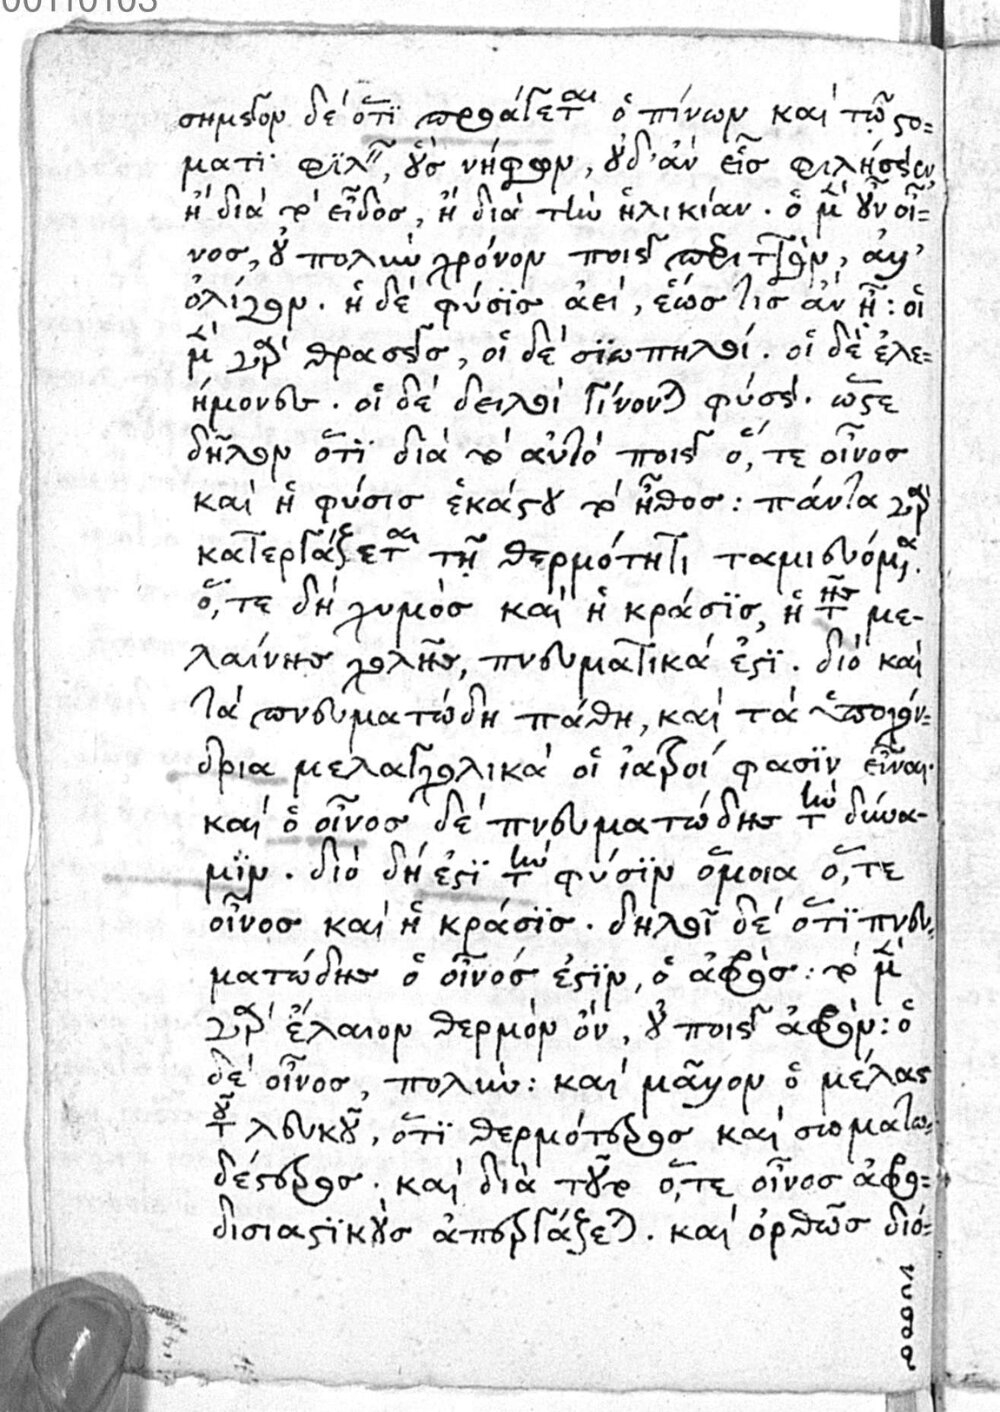 00110103
σημεῖον δέ ὅτι προάγεται ὁ πίνων καί τῷ στό=
ματι φιλεῖν, οὕς νήφων, οὐδ' ἄν εἷς φιλήσειεν
ἤ διά τό εἶδος, ἤ διά τήν ἡλικίαν. ὁ μέν οὖν οἶ=
νος, οὐ πολύν χρόνον ποιεῖ περιττόν, ἀλλ'
ὀλίγον. ἡ δέ φύσις ἀεί, ἕως τις ἄν ἦ: οἱ
μέν γάρ θρασεῖς, οἱ δέ σιωπηλοί. οἱ δέ ἐλε=
ήμονες. οἱ δέ δειλοί γίνονται φύσει. ὥστε
δῆλον ὅτι διά τό αὐτό ποιεῖ ὅ,τε οἶνος
καί ἡ φύσις ἑκάστου τό ἦθος: πάντα γάρ
κατεργάζεται τῇ θερμότητι ταμιευόμενα.
ὅ,τε δή χυμός καί ἡ κράσις, ἡ τῆς με-
λαίνης χολῆς, πνευματικά ἐστι. διό καί
τά πνευματώδη πάθη, καί τά ὑποχόν=
δρια μελαγχολικά οἱ ἰατροί φασιν εἶναι.
καί ὁ οἶνος δέ πνευματώδης τήν δύνα-
μιν. διό δή ἐστι τήν φύσιν ὅμοια ὅ,τε
οἶνος καί ἡ κράσις. δηλοῖ δέ ὅτι πνευ=
ματώδης ὁ οἶνός ἐστιν, ὁ ἀφρός: τό μέν
γάρ ἔλαιον θερμόν ὄν, οὐ ποιεῖ ἀφρόν: ὁ
δέ οἶνος, πολύν: καί μᾶλλον ὁ μέλας
τοῦ λευκοῦ, ὅτι θερμότερος καί σωματω=
δέστερος. καί διά τοῦτο ὅ,τε οἶνος ἀφρο=
δισιαστικούς ἀπεργάζεται. καί ὀρθῶς διό=
νυσος